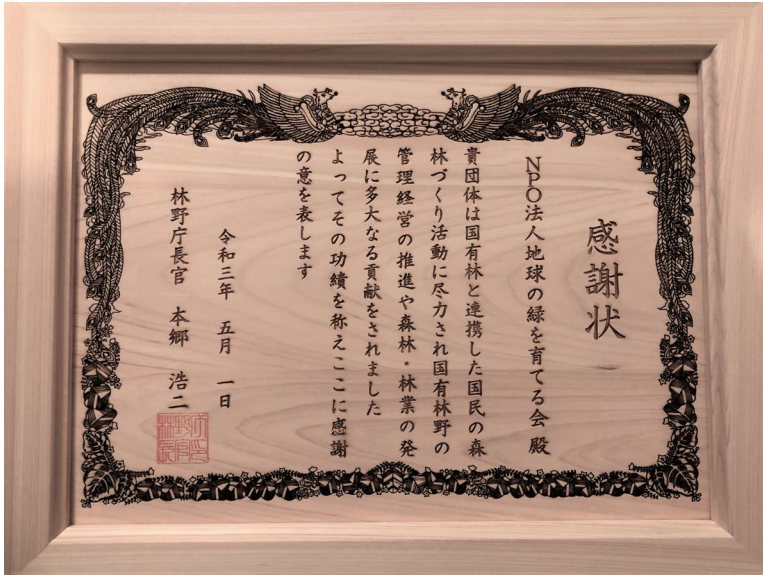 感謝状
NPO法人地球の緑を育てる会 殿
貴団体は国有林と連携した国民の森
林づくり活動に尽力され国有林野の
管理経営の推進や森林・林業の発
展に多大なる貢献をされました
よってその功績を称えここに感謝
の意を表します
令和三年 五月 一日
林野庁長官 本郷 浩二